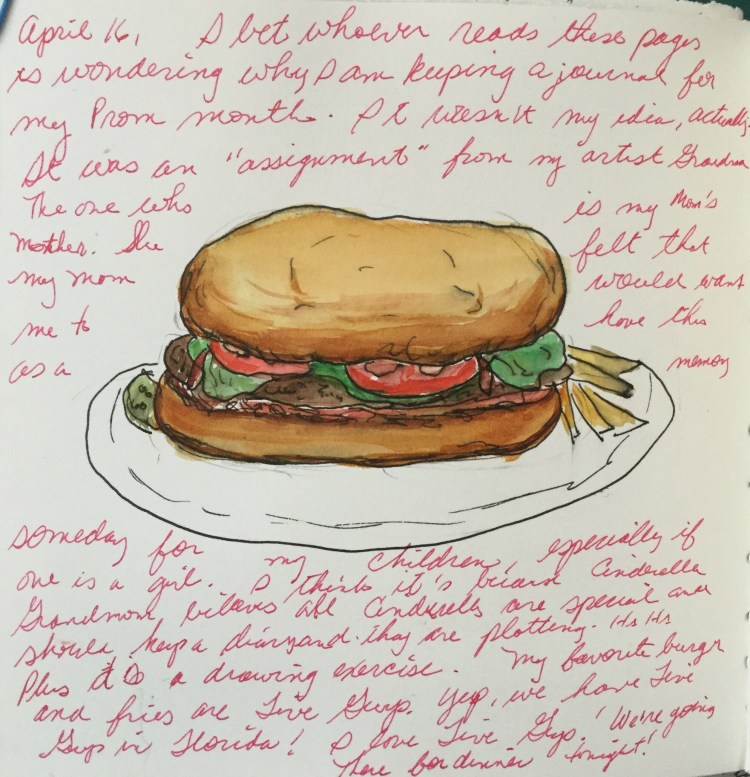 April 16, I bet whoever reads these pages
is wondering why I am keeping a journal for
my Prom month. It wasn't my idea, actually.
It was an "assignment" from my artist Grandma
The one who is my Mom's
Mother. She felt that
my mom would want
me to have this
as a memory
someday for my children, especially if
one is a girl. I think it's because Cinderella
Grandmom, believes all Cinderellas are special and
should keep a diary and they are plotting. Ha Ha
Plus it is a drawing exercise. My favorite burger
and fries are Five Guys. Yep, we have Five
Guys in Florida! I love Five Guys! We're going
there for dinner tonight!